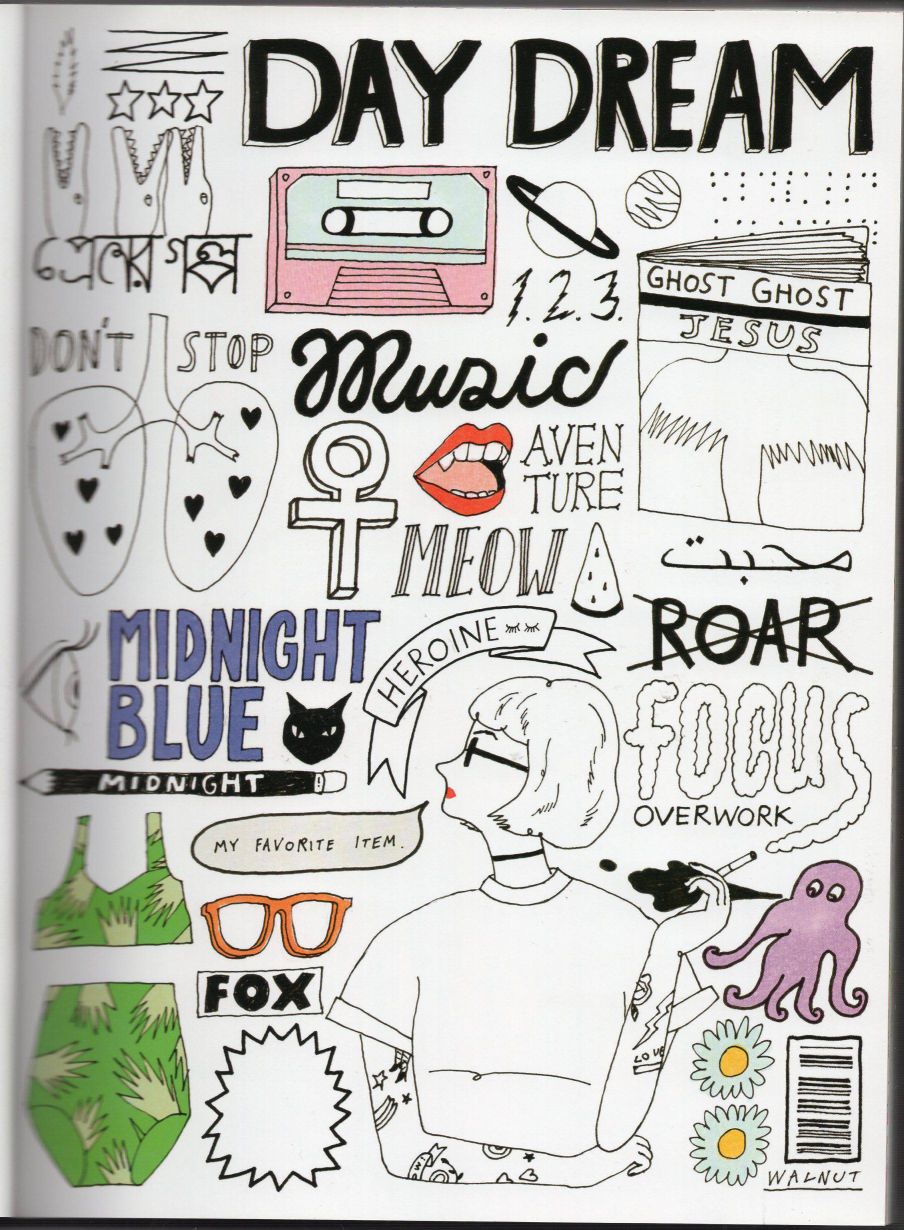 DAY DREAM
প্রেমের গল্প
1.2.3.
GHOST GHOST
JESUS
DON'T STOP
Music
AVEN
TURE
MEOW
محبت
MIDNIGHT
BLUE
HEROINE
ROAR
FOCUS
MIDNIGHT
OVERWORK
MY FAVORITE ITEM.
FOX
LOVE
WALNUT